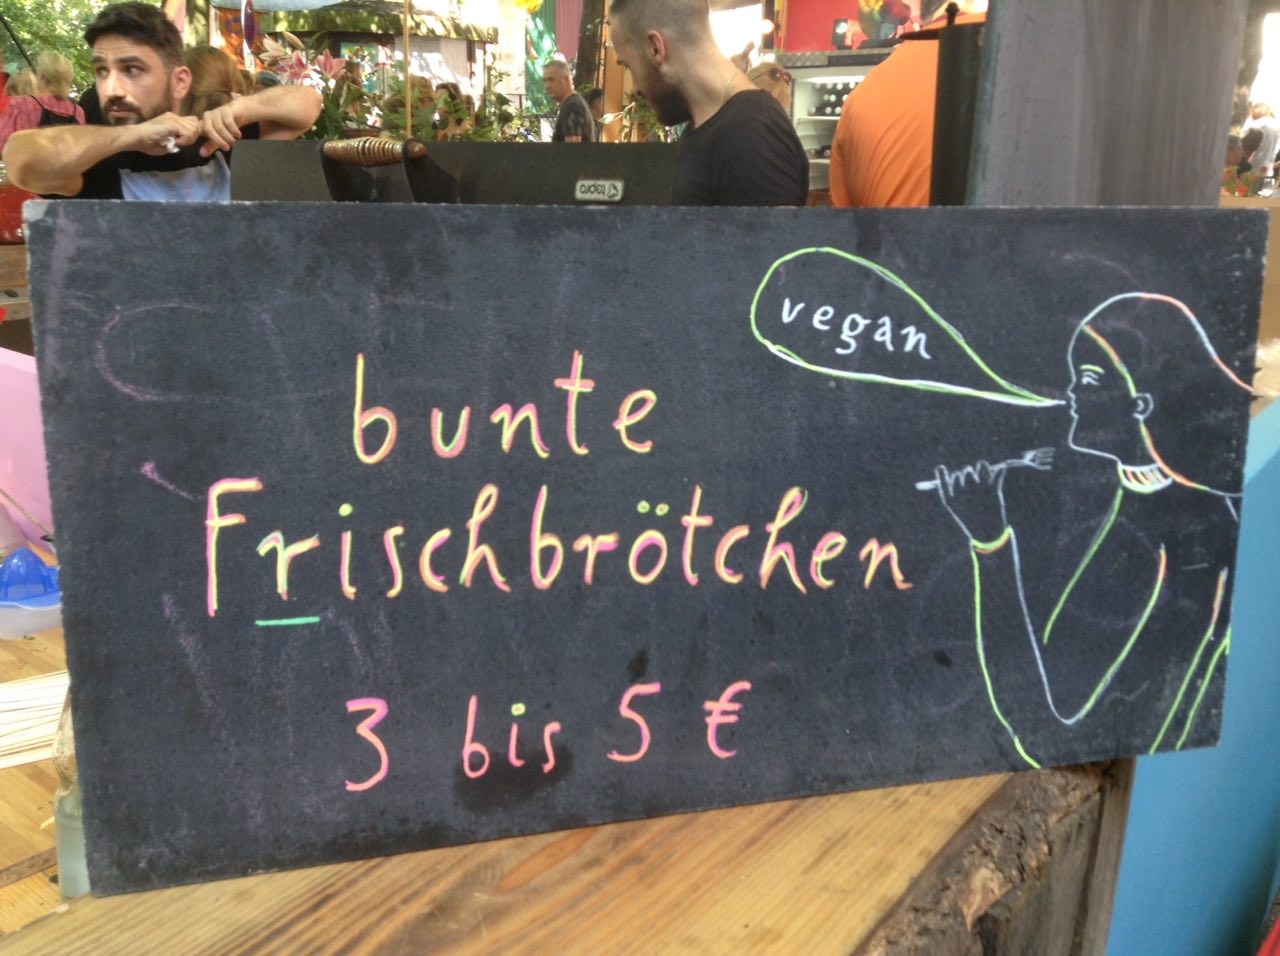 tepro
vegan
bunte
Frischbrötchen
3 bis 5 €